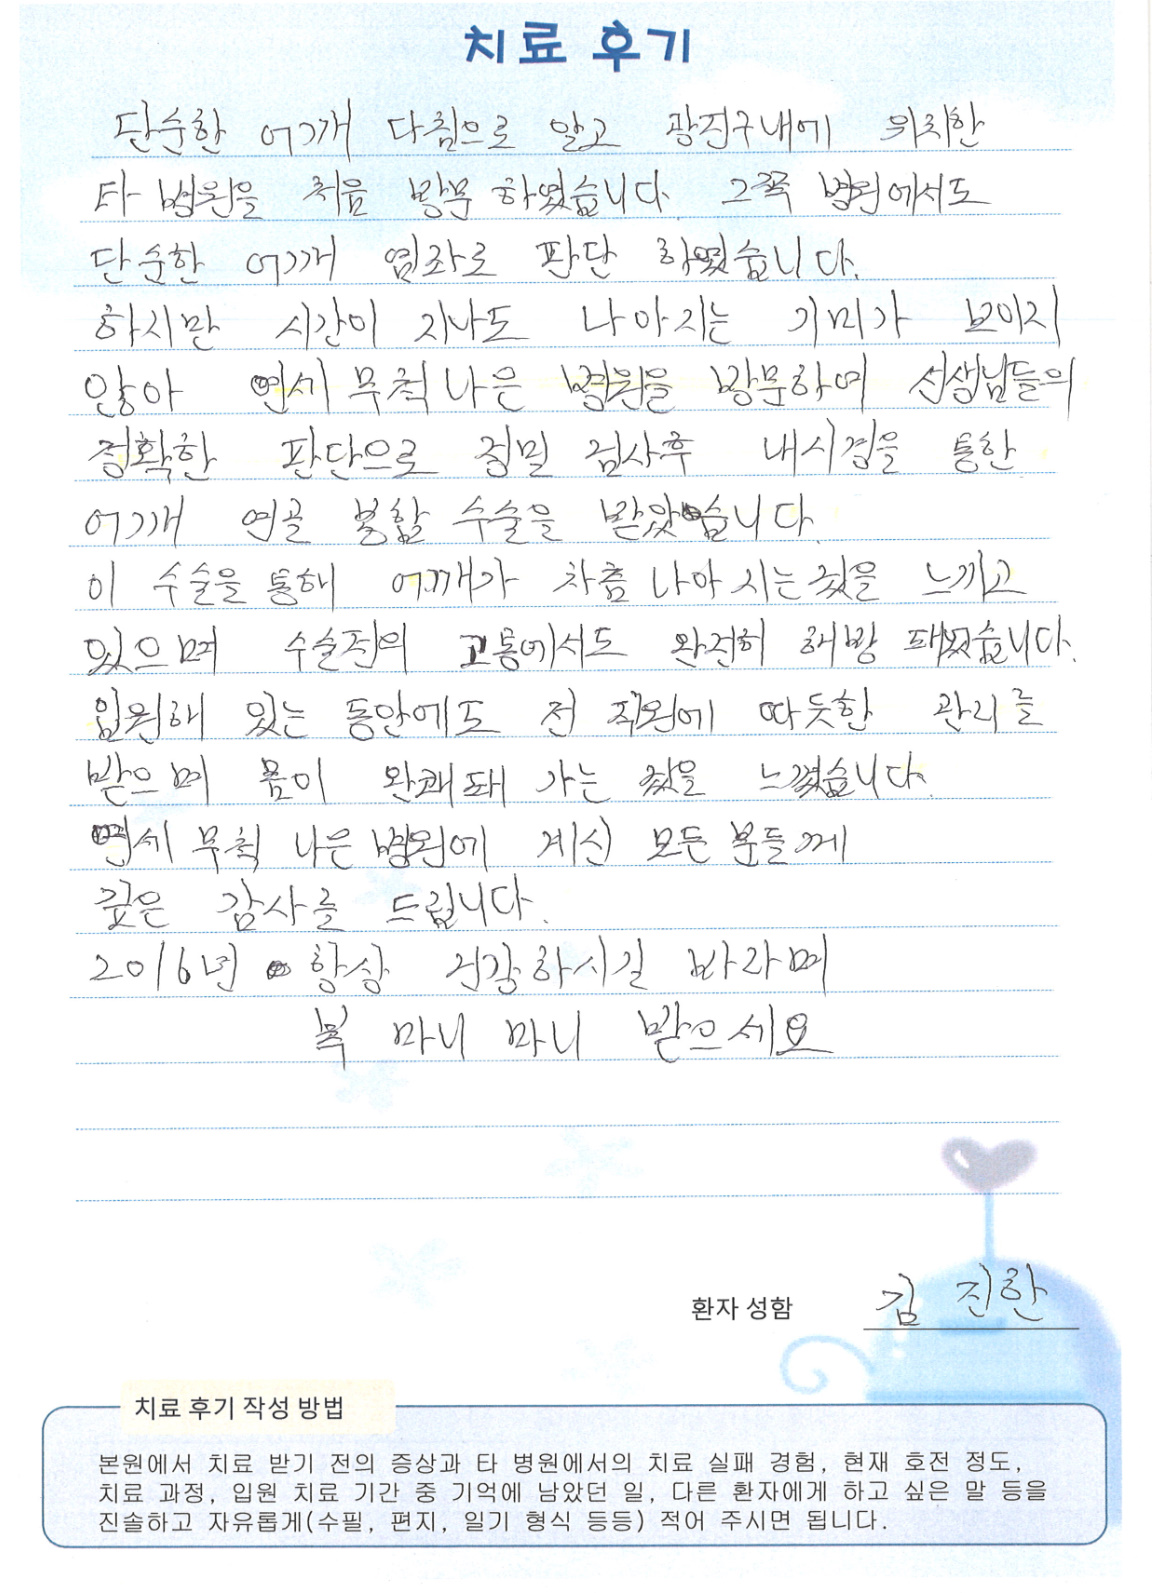 치료 후기
단순한 어깨 다침으로 알고 광진구내에 위치한
타 병원을 처음 방문 하였습니다. 그쪽 병원에서도
단순한 어깨 염좌로 판단 하였습니다.
하지만 시간이 지나도 나아지는 기미가 보이지
않아 연세 무척 나은 병원을 방문하여 선생님들의
정확한 판단으로 정밀 검사후 내시경을 통한
어깨 연골 봉합 수술을 받았습니다.
이 수술을 통해 어깨가 차츰 나아 지는 것을 느끼고
있으며 수술전의 고통에서도 완전히 해방 돼었습니다.
입원해 있는 동안에도 전 직원에 따듯한 관리를
받으며 몸이 완쾌돼 가는 것을 느꼈습니다.
연세 무척 나은 병원에 계신 모든 분들께
깊은 감사를 드립니다.
2016년 항상 건강하시길 바라며
복 마니 마니 받으세요
환자 성함 김 진한
치료 후기 작성 방법
본원에서 치료 받기 전의 증상과 타 병원에서의 치료 실패 경험, 현재 호전 정도,
치료 과정, 입원 치료 기간 중 기억에 남았던 일, 다른 환자에게 하고 싶은 말 등을
진솔하고 자유롭게(수필, 편지, 일기 형식 등등) 적어 주시면 됩니다.